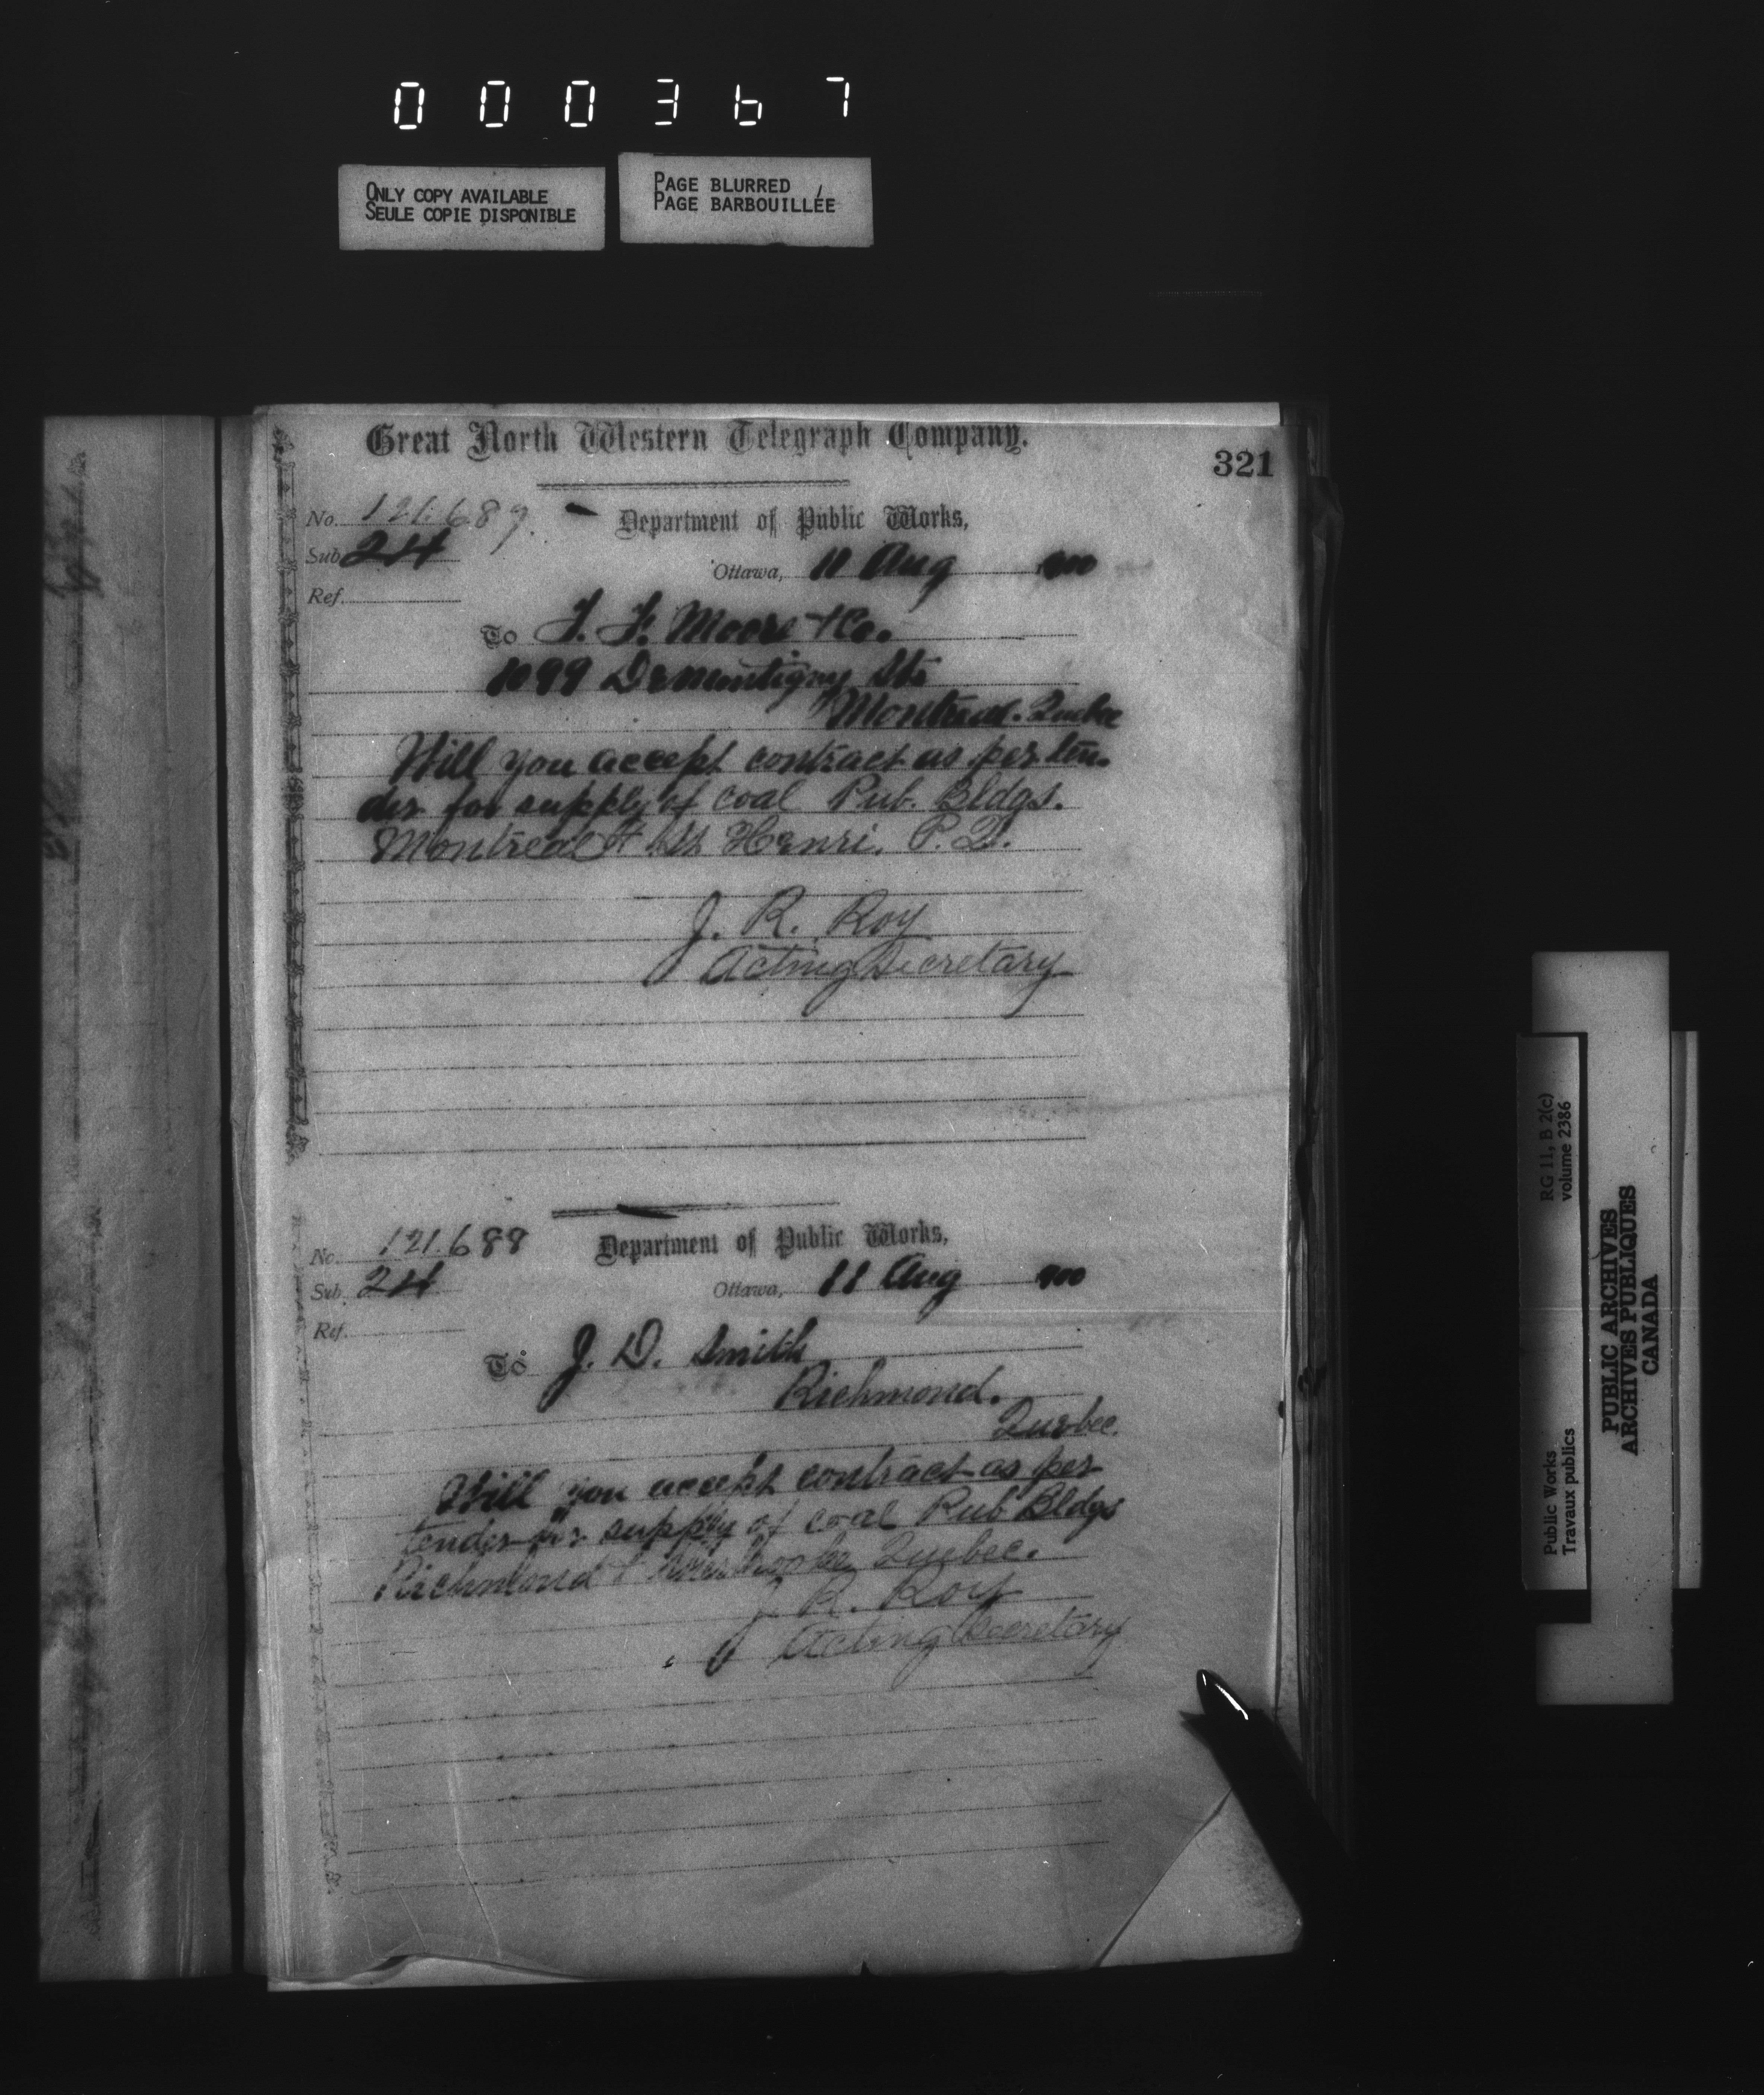 000367
ONLY COPY AVAILABLE
SEULE COPIE DISPONIBLE
PAGE BLURRED
PAGE BARBOUILLÉE
Great North Western Telegraph Company.
321
No. 121.689.
Department of Public Works,
Sub 24
Ottawa, 11 Aug 900
Ref.
To J. F. Moore & Co.
1099 DeMontigny St.
Montreal. Quebec
Will you accept contract as per ten-
der for supply of coal Pub. Bldgs.
Montreal & St Henri. P. Q.
J. R. Roy
Acting Secretary
No. 121.688
Department of Public Works,
Sub. 24
Ottawa, 11 Aug 900
Ref.
To J. D. Smith
Richmond.
Quebec.
Will you accept contract as per
tender for supply of coal Pub Bldgs
Richmond & Sherbrooke Quebec.
J. R. Roy
Acting Secretary
Public Works
Travaux publics
RG 11, B 2(c)
volume 2386
PUBLIC ARCHIVES
ARCHIVES PUBLIQUES
CANADA